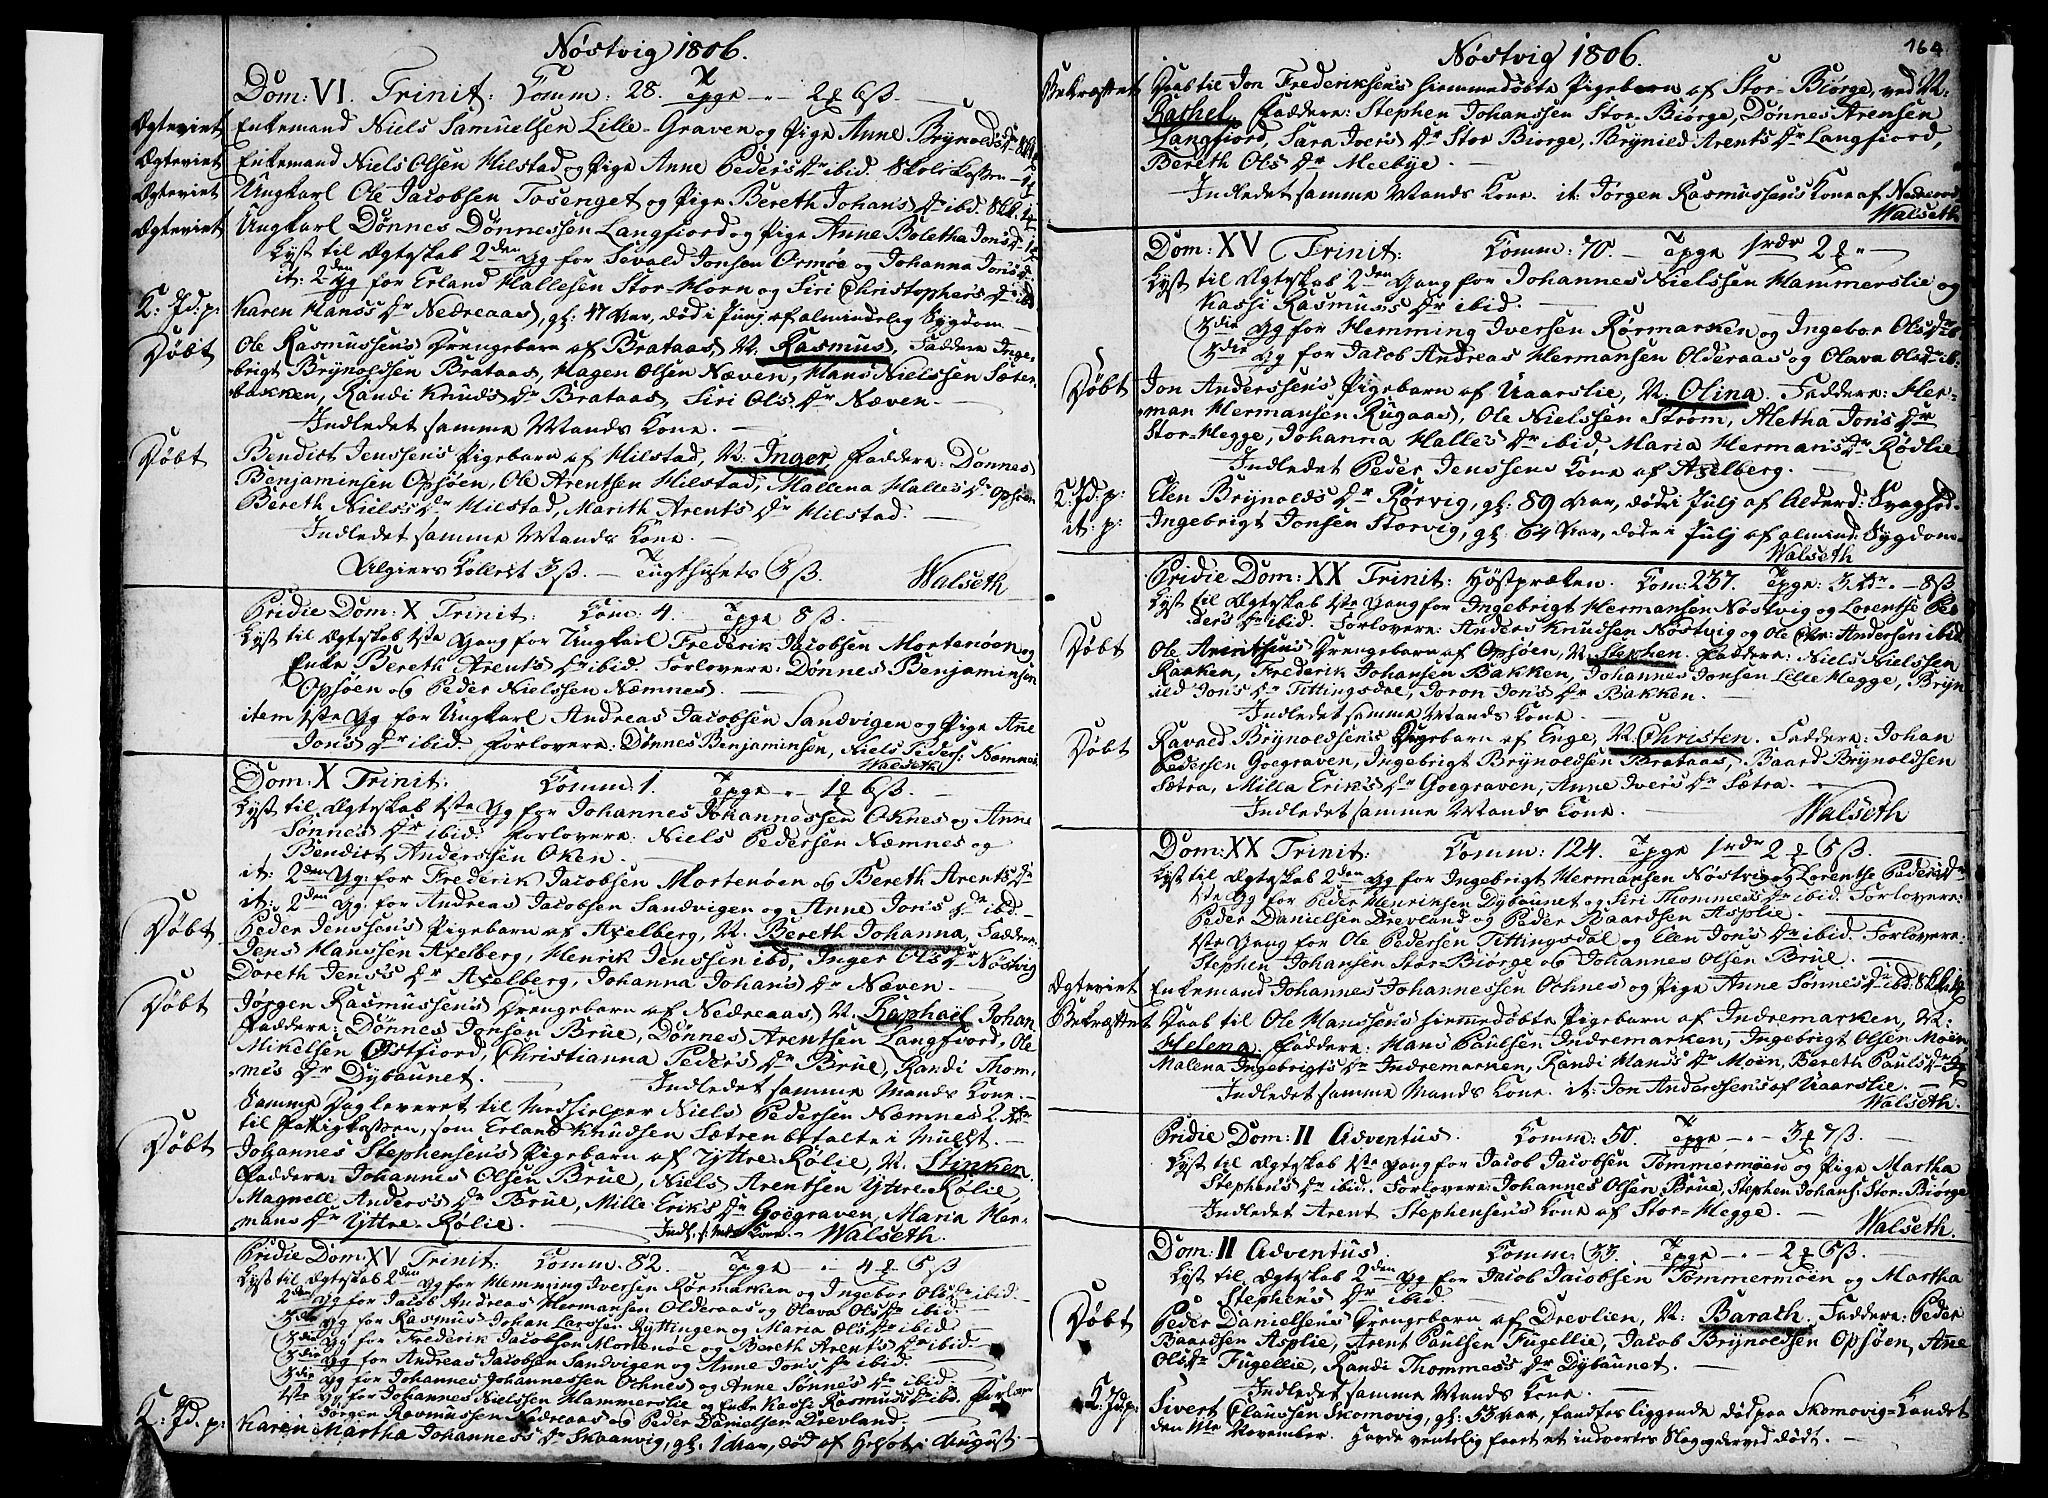 Nöstvig 1806.
Dom: VI. Trinit: Comm: 28. Tpge
Ægteviet Enkemand Niels Samuelsen Lille-Graven og Pige Anne Brynolds Dr
Ægteviet Enkemand Niels Olsen Hilstad og Pige Anne Peders Dr ibid.
Ægteviet Ungkarl Ole Jacobsen Tosenget og Pige Bereth Johans Dr ibid.
Ægteviet Ungkarl Dönnes Dönnessen Langfiord og Pige Anne Boletha Jons Dr
Lyst til Ægteskab 2den Gg for Sevald Jonsen Ormöe og Johanna Jons Dr
it: 2den Gg for Erland Hallesen Stor-Horn og Siri Christophers Dr ibid.
K: Jd: p: Karen Hans's Dr Nedreaas, gl: 47 Aar, död i Junj af almindelig Sygdom
Döbt Ole Rasmussens Drengebarn af Brataas, N. Rasmus. Faddere Inge-
brigt Brynoldsen Brataas, Hagen Olsen Næven, Hans Nielssen Sæter-
bakken, Randi Knuds Dr Brataas, Siri Ols Dr Næven.
Indledet samme Mands Kone.
Döbt Bendict Jenssens Pigebarn af Hilstad, N. Inger. Faddere: Dönnes
Benjaminsen Opsöen, Ole Arentsen Hilstad, Mallena Halles Dr Opsöen
Bereth Niels's Dr Hilstad, Marith Arents Dr Hilstad.
Indledet samme Mands Kone.
Algiers Collect 3 ß. Tugthusets 6 ß. Walseth
Pridie Dom: X Trinit: Com: 4. Tpge 8 ß.
Lyst til Ægteskab 1ste Gang for Ungkarl Frederik Jacobsen Mortenöen og
Enke Bereth Arents Dr ibid. Forlovere: Dönnes Benjaminsen
Opsöen og Peder Nielssen Næmnes.
item 1ste Gg for Ungkarl Andreas Jacobsen Sandvigen og Pige Añe
Jon's Dr ibid. Forlovere: Dönnes Benjaminsen, Niels Peders: Næmnes.
Walseth
Dom: X Trinit: Comm: 1. Tpge
Lyst til Ægteskab 1ste Gg for Johannes Johannessen Oknes og Anne
Sönnes Dr ibid. Forlovere: Niels Pedersen Næmnes og
Bendict Anderssen Oken.
it: 2den Gg: for Frederik Jacobsen Mortenöen og Bereth Arents Dr
it: 2den Gg. for Andreas Jacobsen Sandvigen og Anne Jon's Dr ibd.
Döbt Peder Jenssen's Pigebarn af Axelberg, N. Bereth Johanna, Faddere:
Jens Hanssen Axelberg, Henrik Jenssen ibd, Inger Ols Dr Nöstvig
Doreth Jens's Dr Axelberg, Johanna Johans Dr Næven.
Döbt Jörgen Rasmussen's Drengebarn af Nedreaas, N. Raphael. Johan
Faddere: Dönnes Jonsen Brue, Dönnes Arentsen Langfiord, Ole
Mikelsen Östfiord, Christianna Peders Dr Brue, Randi Thom-
mes Dr Dybaunet. Indledet samme Mands Kone.
Samme Dag leveret til Medhielper Niels Pedersen Næmnes 2
til Fattigkassen, som Erland Knudsen Sætren betalte i Mulkt.
Döbt Johannes Stephensen's Pigebarn af Yttre-Rölie, N. Stinken
Faddere: Johannes Olsen Brue, Niels Arentsen Yttre-Rölie,
Magnell Anders's Dr Brue, Mille Eriks Dr Goegraven, Maria Her-
mans Dr Yttre-Rölie. Indl. s: Mds Kone. Walseth.
Pridie Dom: XV Trinit: Comm: 82. Tpge
Lyst til Ægteskab 2den Gg for Hemming Iversen Rörmarken og Ingebor Ols Dr ibid.
2den Gg for Jacob Andreas Hermansen Olderaas og Olava Ols Dr ibid.
3die Gg for Rasmus Johan Larssen Ryttingen og Maria Ols Dr ibid.
3die Gg for Frederik Jacobsen Mortenöe og Bereth Arent's Dr ibid.
3die Gg for Andreas Jacobsen Sandvigen og Anne Jon's Dr ibid.
3die Gg for Johannes Johannessen Ochnes og Anne Sönnes Dr ibid.
1ste Gg for Johannes Nielssen Hammerslie og Enke Kassi Rasmuss Dr ibd. Forlover
Jörgen Rasmussen Nedreaas og Peder Danielsen Drevland.
K: Jd. p: Karen Martha Johannes's Dr Skaanvig, gl. 1 Aar, död af Hoste i August
164.
Nöstvig 1806.
Bekræftet Daab til Jon Frederiksens hiemmedöbte Pigebarn af Stor-Biörge, ved N.
Rathel, Faddere: Stephen Johanssen Stor-Biörge, Dönnes Arensen
Langfiord, Sara Joers Dr Stor Biorge, Brynild Arents Dr Langfiord,
Bereth Ols Dr Meebye.
Indledet samme Mands Kone. it: Jörgen Rasmussens Kone af Nedreaas
Walseth
Dom: XV Trinit: Comm: 70. Tpge
Lyst til Ægteskab 2den Gang for Johannes Nielssen Hammerslie og
Kassi Rasmuss Dr ibid.
3die Gg for Hemming Iversen Rörmarken og Ingebor Ols Dr ib.
3die Gg for Jacob Andreas Hermansen Olderaas og Olava Ols Dr ib:
Döbt Jon Anderssen's Pigebarn af Uaarslie, N. Olina. Faddere: Her-
man Hermansen Rugaas, Ole Nielssen Ström, Aletha Jon's Dr
Stor-Hegge, Johanna Halles Dr ibid, Maria Herman's Dr Rödlie.
Indledet Peder Jenssens Kone af Axelberg.
K: Jd: p: Elen Brynolds Dr Rörvig, gl: 89 Aar, död i Julj af Alderd: Svaghed.
it: p: Ingebrigt Jonsen Storvig, gl: 64 Aar, döde i Julj af almind: Sygdom.
Walseth
Pridie Dom: XX Trinit: Höstpræken. Com: 237. Tpge: 3 8 ß
Lyst til Ægteskab 1ste Gang for Ingebrigt Hermansen Nöstvig og Lorentse Pe-
ders Dr ibid. Forlovere: Anders Knudsen Nöstvig og Ole Chr: Andersen ibid
Döbt Ole Arentsen's Drengebarn af Opsöen, N. Stephen. Faddere: Niels Nielssen
Raaken, Frederik Johansen Bakken, Johannes Jonsen Lille Hegge, Bryn
ild Jon's Dr Tittingsdal, Joron Jon's Dr Bakken.
Indledet samme Mands Kone.
Döbt Ravald Brynoldsen's Drengebarn af Enge, N. Christen. Faddere: Johan
Pedersen Goegraven, Ingebrigt Brynoldsen Brataas, Baard Brynoldsen
Sætra, Milla Erik's Dr Goegraven, Anne Ivers Dr Sætra.
Indledet samme Mands Kone. Walseth
Dom: XX Trinit: Comm: 124. Tpge
Lyst til Ægteskab 2den Gg for Ingebrigt Hermansen Nöstvig og Lorentse Peders Dr
1ste Gg for Peder Henriksen Dybaunet og Siri Thommes Dr ibid. Forlovere:
Peder Danielsen Drevland og Peder Baardsen Asplie.
1ste Gang for Ole Pedersen Tittingsdal og Elen Jon's Dr ibid. Forlovere:
Stephen Johansen Stor-Biörge og Johannes Olsen Brue.
Ægteviet Enkemand Johannes Johannessen Ochnes og Pige Anne Sönnes Dr ibd:
Bekræftet Daab til Ole Hanssen's hiemmedöbte Pigebarn af Indremarken, N.
Helena. Faddere: Hans Paulsen Indremarken, Ingebrigt Olsen Moen
Malena Ingebrigts Dr Indremarken, Randi Hans's Dr Moen, Bereth Pauls Dr
Indledet samme Mands Kone. it: Jon Anderssen's af Uaarslie.
Walseth.
Pridie Dom: II Adventus. Comm: 50. Tpge
Lyst til Ægteskab 1ste Gang for Jacob Jacobsen Tommermöen og Pige Martha
Stephen's Dr ibid. Forlovere: Johannes Olsen Brue, Stephen Johans: Stor-Biörge
Indledet Arent Stephensen's Kone af Stor-Hegge. Walseth.
Dom: II Adventus. Comm: 33. Tpge
Lyst til Ægteskab 2den Gg for Jacob Jacobsen Tommermöen og Martha
Stephen's Dr ibid
Döbt Peder Danielsens Drengebarn af Drevlien, N: Barath. Faddere: Peder
Baardsen Asplie, Arent Paulsen Fugellie, Jacob Brynolsen Opsöen, Añe
Ols Dr Fugellie, Randi Thommes's Dr Dybaunet.
Indledet samme Mands Kone.
K: Jd: p: Sivert Claussen Skomovig, gl: 53 Aar, fandtes liggende död paa Skomovig-Landet
den November. Havde ventelig faaet et indvortes Slag og derved dödt.